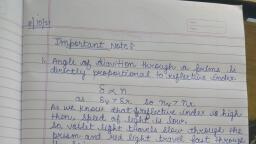 Important Note:
1. Angle of diviation through a prism is
directly proportional to reflective index
δ ∝ n
as δv > δr so nv > nr.
As we know that if reflective index is high
then, speed of light is slow.
So, voilet light travels slow through the
prism and red light travel fast through